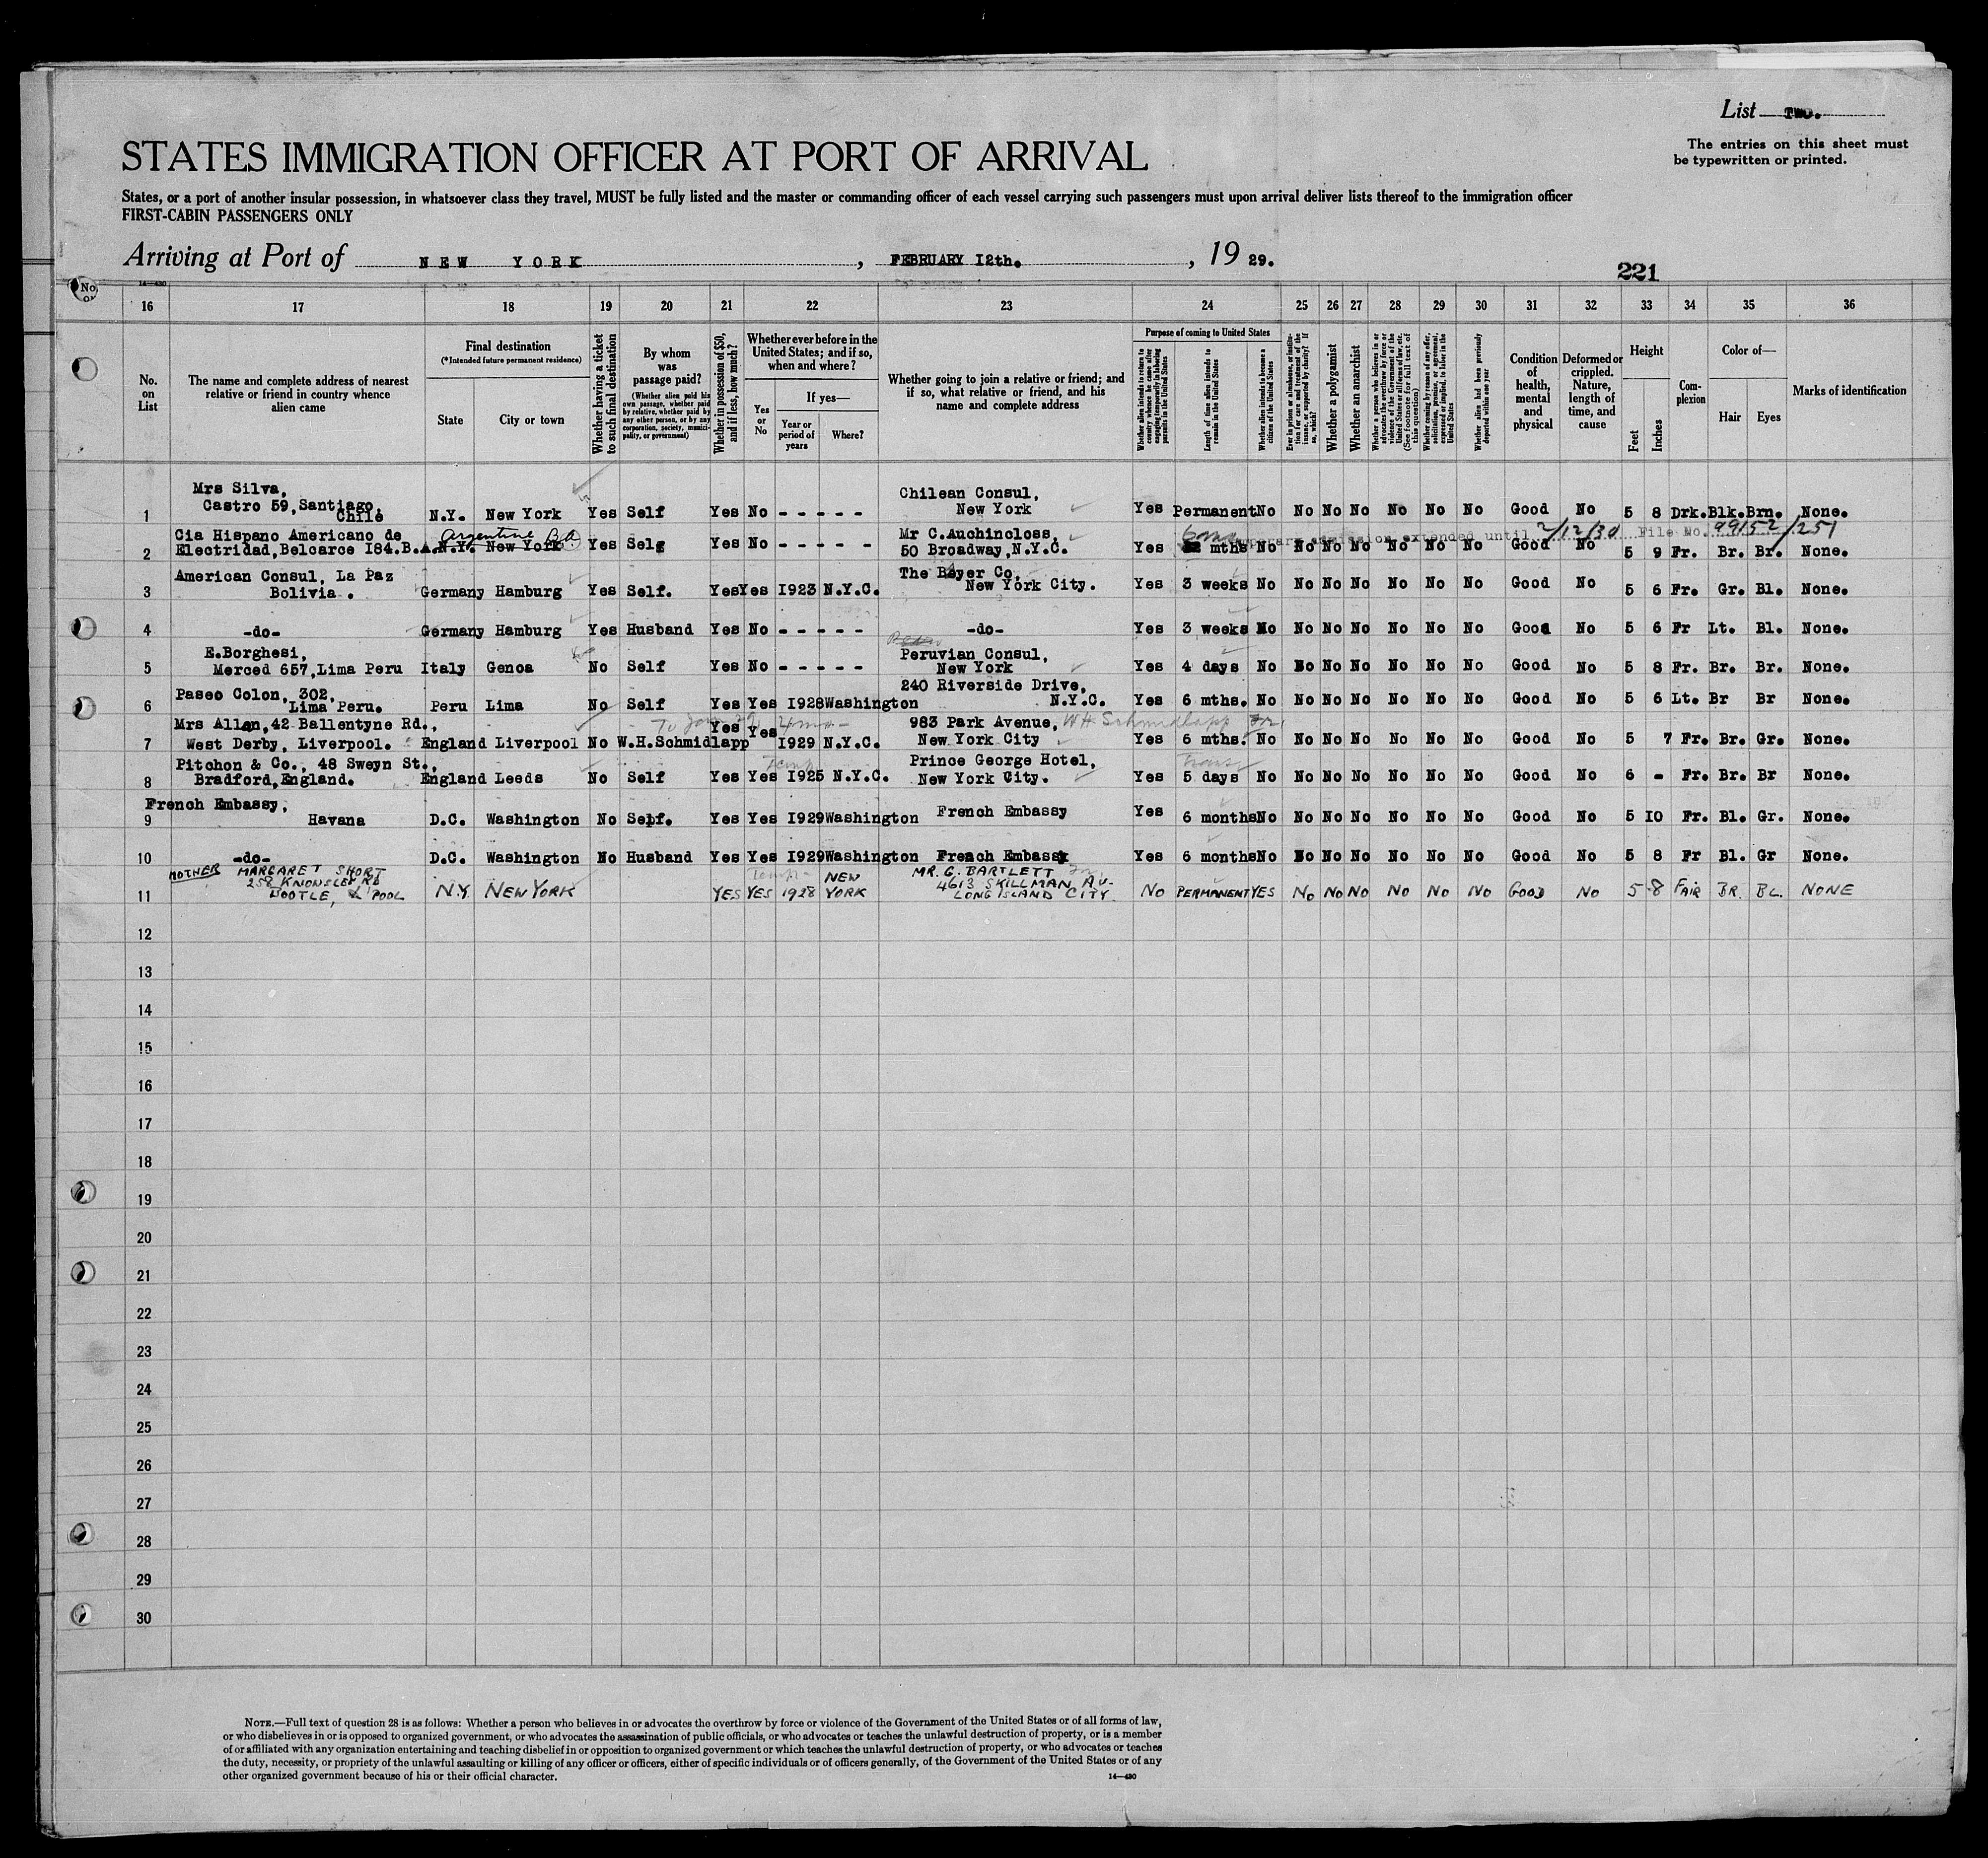 List Two.
The entries on this sheet must
be typewritten or printed.
STATES IMMIGRATION OFFICER AT PORT OF ARRIVAL
States, or a port of another insular possession, in whatsoever class they travel, MUST be fully listed and the master or commanding officer of each vessel carrying such passengers must upon arrival deliver lists thereof to the immigration officer
FIRST-CABIN PASSENGERS ONLY
Arriving at Port of NEW YORK, FEBRUARY I2th., 19 29.
221
14—430
16 17 18 19 20 21 22 23 24 25 26 27 28 29 30 31 32 33 34 35 36
No. on List
The name and complete address of nearest relative or friend in country whence alien came
Final destination
(*Intended future permanent residence)
State
City or town
Whether having a ticket to such final destination
By whom was passage paid?
(Whether alien paid his own passage, whether paid by relative, whether paid by any other person, or by any corporation, society, municipality, or government)
Whether in possession of $50, and if less, how much?
Whether ever before in the United States; and if so, when and where?
Yes or No
If yes—
Year or period of years
Where?
Whether going to join a relative or friend; and if so, what relative or friend, and his name and complete address
Purpose of coming to United States
Whether alien intends to return to country whence he came after engaging temporarily in laboring pursuits in the United States
Length of time alien intends to remain in the United States
Whether alien intends to become a citizen of the United States
Ever in prison or almshouse, or institution for care and treatment of the insane, or supported by charity? If so, which?
Whether a polygamist
Whether an anarchist
Whether a person who believes in or advocates the overthrow by force or violence of the Government of the United States or all forms of law, etc. (See footnote for full text of this question)
Whether coming by reason of any offer, solicitation, promise, or agreement, expressed or implied, to labor in the United States
Whether alien had been previously deported within one year
Condition of health, mental and physical
Deformed or crippled. Nature, length of time, and cause
Height
Feet
Inches
Complexion
Color of—
Hair
Eyes
Marks of identification
Mrs Silva,
Castro 59, Santiago,
Chile
Chilean Consul,
1 N.Y. New York Yes Self Yes No - - - - - New York Yes Permanent No No No No No No No Good No 5 8 Drk. Blk. Brn. None.
Cia Hispano Americano de
Argentine B.A.
Mr C.Auchincloss,
6 mos
Temporary admission extended until 2/12/30 File No. 99152/251
2 Electridad, Belcarce I84.B.A. N.Y. New York Yes Selg Yes No - - - - - 50 Broadway, N.Y.C. Yes mths No No No No No No No Good No 5 9 Fr. Br. Br. None.
American Consul, La Paz
The Bayer Co,
3 Bolivia. Germany Hamburg Yes Self. Yes Yes I923 N.Y.C. New York City. Yes 3 weeks No No No No No No No Good No 5 6 Fr. Gr. Bl. None.
4 -do- Germany Hamburg Yes Husband Yes No - - - - - -do- Yes 3 weeks No No No No No No No Good No 5 6 Fr Lt. Bl. None.
E.Borghesi,
Peruvian Consul,
5 Merced 657, Lima Peru Italy Genoa No Self Yes No - - - - - New York Yes 4 days No No No No No No No Good No 5 8 Fr. Br. Br. None.
Paseo Colon, 302,
240 Riverside Drive,
6 Lima Peru. Peru Lima No Self Yes Yes I928 Washington N.Y.C. Yes 6 mths. No No No No No No No Good No 5 6 Lt. Br Br None.
Mrs Allen, 42 Ballentyne Rd.,
To Jan 29 4 mo
983 Park Avenue, W H Schmidlapp
7 West Derby, Liverpool. England Liverpool No W.H.Schmidlapp Yes Yes I929 N.Y.C. New York City Yes 6 mths. No No No No No No No Good No 5 7 Fr. Br. Gr. None.
Pitchon & Co., 48 Sweyn St.,
Temp
Prince George Hotel,
Trans
8 Bradford, England. England Leeds No Self Yes Yes I925 N.Y.C. New York City. Yes 5 days No No No No No No No Good No 6 - Fr. Br. Br None.
French Embassy,
9 Havana D.C. Washington No Self. Yes Yes I929 Washington French Embassy Yes 6 months No No No No No No No Good No 5 IO Fr. Bl. Gr. None.
10 -do- D.C. Washington No Husband Yes Yes I929 Washington French Embassy Yes 6 months No No No No No No No Good No 5 8 Fr Bl. Gr None.
MOTHER MARGARET SHORT
258 KNOWSLEY RD
Temp NEW
MR. G. BARTLETT
4613 SKILLMAN AV-
11 BOOTLE, L'POOL N.Y. NEW YORK YES YES 1928 YORK LONG ISLAND CITY. NO PERMANENT YES No No No No No No GOOD NO 5-8 FAIR BR. BL. NONE
12
13
14
15
16
17
18
19
20
21
22
23
24
25
26
27
28
29
30
NOTE.—Full text of question 28 is as follows: Whether a person who believes in or advocates the overthrow by force or violence of the Government of the United States or of all forms of law,
or who disbelieves in or is opposed to organized government, or who advocates the assassination of public officials, or who advocates or teaches the unlawful destruction of property, or is a member
of or affiliated with any organization entertaining and teaching disbelief in or opposition to organized government or which teaches the unlawful destruction of property, or who advocates or teaches
the duty, necessity, or propriety of the unlawful assaulting or killing of any officer or officers, either of specific individuals or of officers generally, of the Government of the United States or of any
other organized government because of his or their official character.
14—430